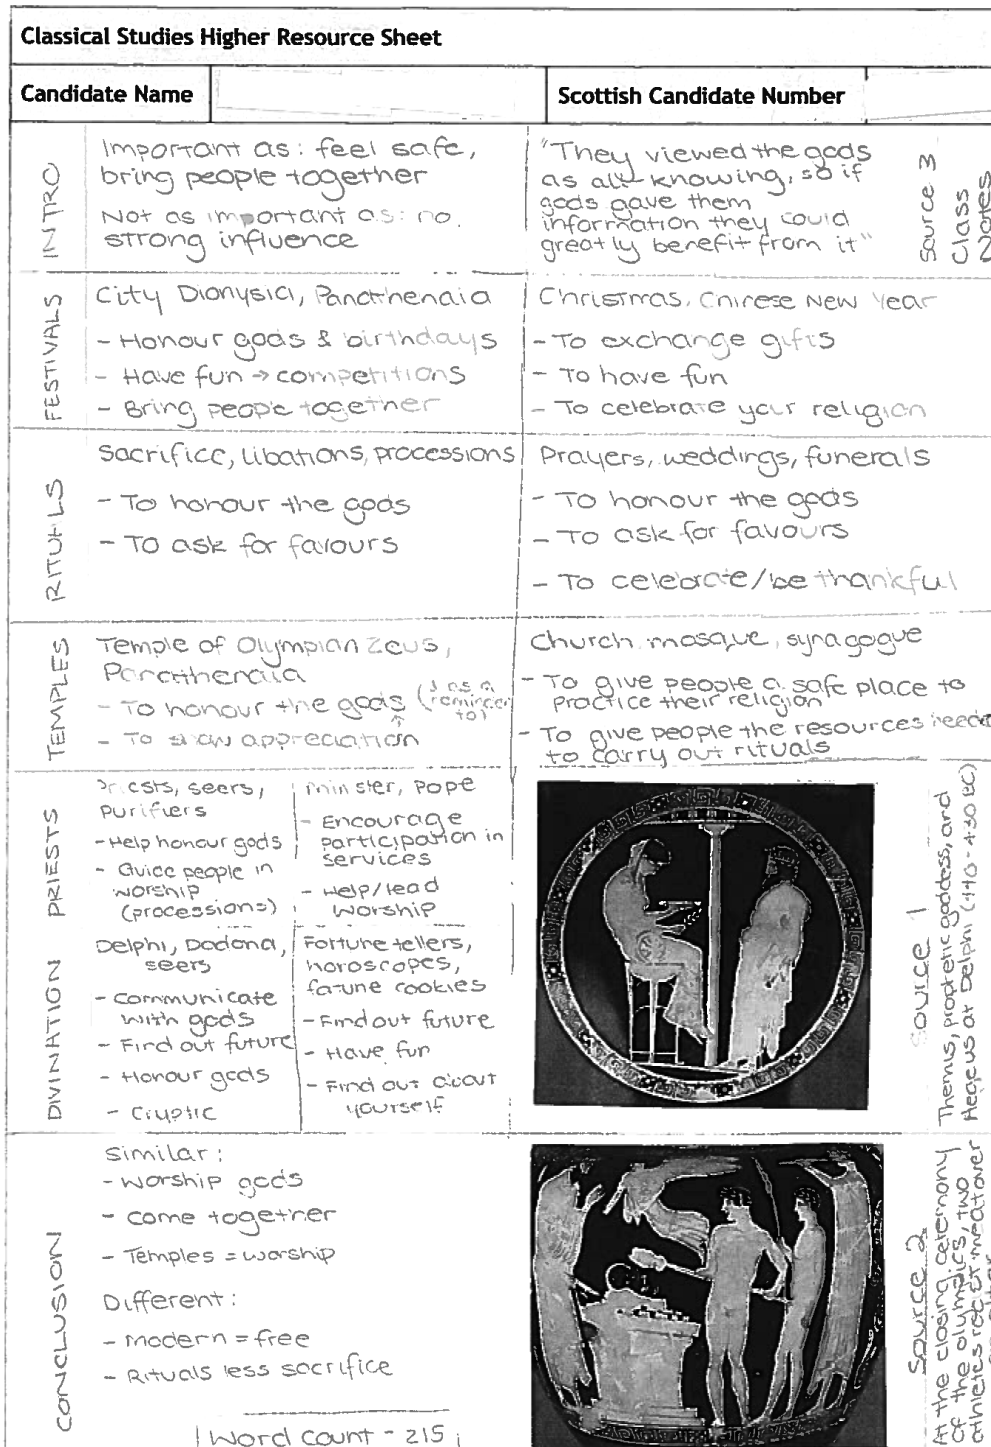 Classical Studies Higher Resource Sheet
Candidate Name
Scottish Candidate Number
INTRO
Important as: feel safe,
bring people together
Not as important as: no
strong influence
"They viewed the gods
as all-knowing, so if
gods gave them
information they could
greatly benefit from it"
Source 3
Class
Notes
FESTIVALS
City Dionysia, Panathenaia
- Honour gods & birthdays
- Have fun → competitions
- Bring people together
Christmas, Chinese New Year
- To exchange gifts
- To have fun
- To celebrate your religion
RITUALS
Sacrifice, libations, processions
- To honour the gods
- To ask for favours
Prayers, weddings, funerals
- To honour the gods
- To ask for favours
- To celebrate/be thankful
TEMPLES
Temple of Olympian Zeus,
Panathenaia
- To honour the gods (& as a
reminder
to)
- To show appreciation
Church, mosque, synagogue
- To give people a safe place to
practice their religion
- To give people the resources needed
to carry out rituals
PRIESTS
Priests, seers,
purifiers
- Help honour gods
- Guide people in
worship
(processions)
Minister, Pope
- Encourage
participation in
services
- Help/lead
worship
DIVINATION
Delphi, Dodona,
seers
- Communicate
with gods
- Find out future
- Honour gods
- Cryptic
Fortune tellers,
horoscopes,
fortune cookies
- Find out future
- Have fun
- Find out about
yourself
Source 1
Themus, prophetic goddess, and
Aegeus at Delphi (440-430 BC)
CONCLUSION
Similar:
- Worship gods
- Come together
- Temples = worship
Different:
- modern = free
- Rituals less sacrifice
Word Count - 215
Source 2
At the closing ceremony
of the olympics, two
athletes meat over